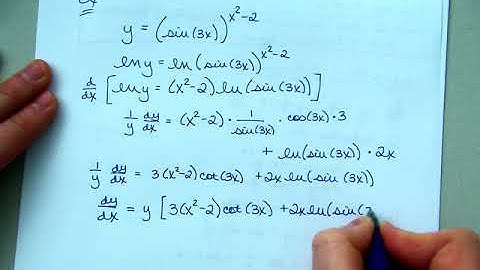 Ex
y = (sin(3x))^{x²-2}
ln y = ln(sin(3x))^{x²-2}
d/dx [ln y = (x²-2) ln(sin(3x))]
1/y dy/dx = (x²-2) · 1/sin(3x) · cos(3x) · 3
+ ln(sin(3x)) · 2x
1/y dy/dx = 3(x²-2)cot(3x) + 2x ln(sin(3x))
dy/dx = y [3(x²-2)cot(3x) + 2x ln(sin(